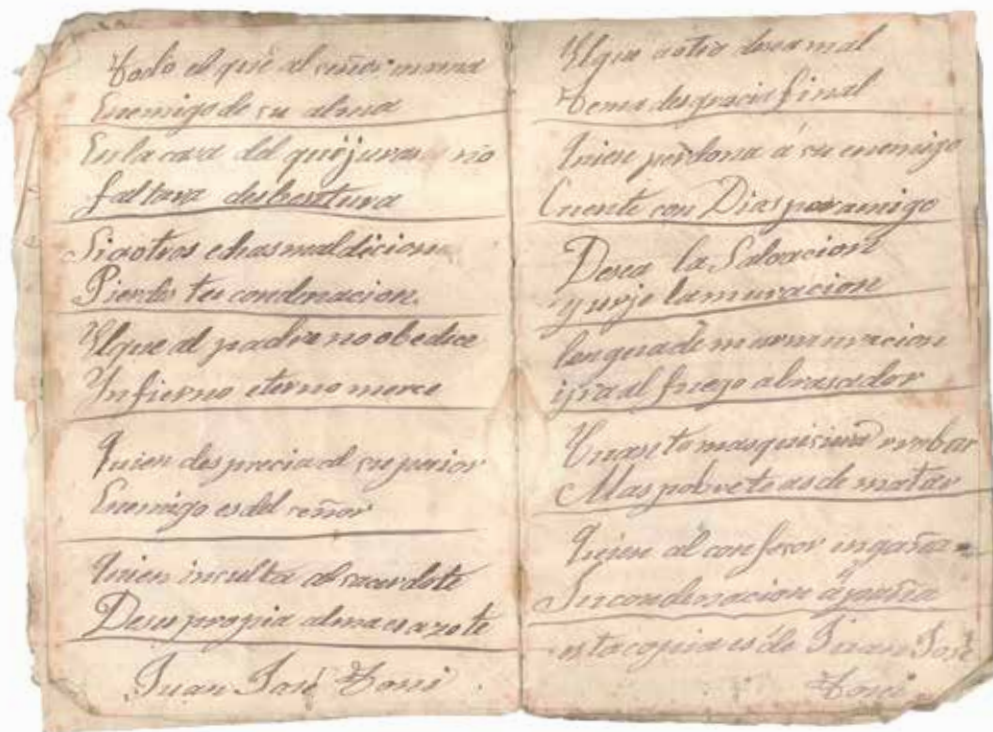 Todo el que al señor no ama
Enemigo de su alma
En la casa del que jura no
faltara desbentura
Si a otros echas maldicion
Pierdes tu condenacion.
El que al padre no obedice
Ynfierno eterno merce
Quien desprecia al superior
Enemigo es del señor
Quien insulta al sacerdote
De su propia alma es azote
Juan José
El que a otro desea mal
Tema desgracia final
Quien perdona á su enemigo
Cuente con Dias por amigo
Desea la Salvacion
y
lengua de murmuracion
yra al fuego abrasador
Cuanto mas quisiera robar
Mas pobre te as de matar
Quien al confesor engaña
Su condenacion
esta copia es de Juan José